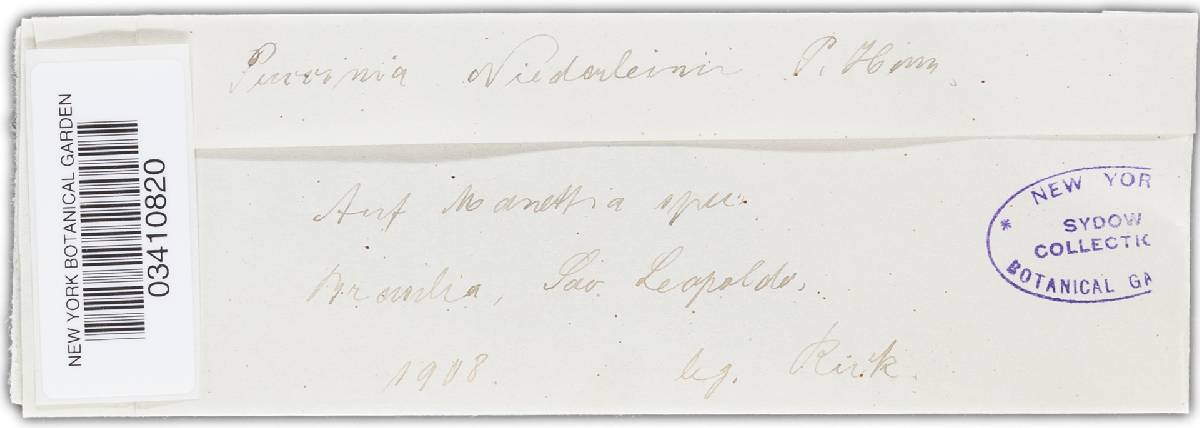 Puccinia Niederleinii P. Henn.
Auf Manettia spec.
Brasilia, São Leopoldo,
1908. leg. Rick.
NEW YORK BOTANICAL GARDEN
03410820
NEW YOR
* SYDOW
COLLECTIO
BOTANICAL GA